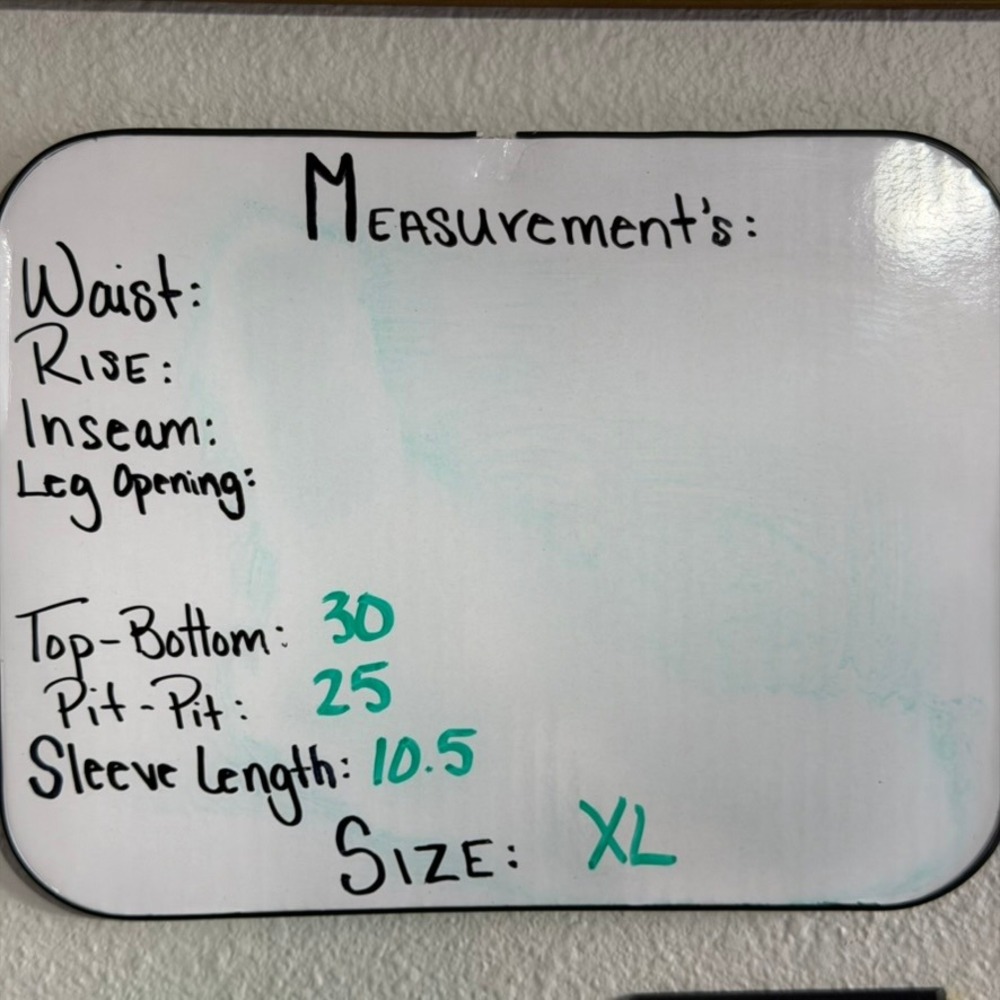 MEASurement's:
Waist:
RISE:
Inseam:
Leg Opening:
Top-Bottom: 30
Pit-Pit: 25
Sleeve Length: 10.5
SIZE: XL